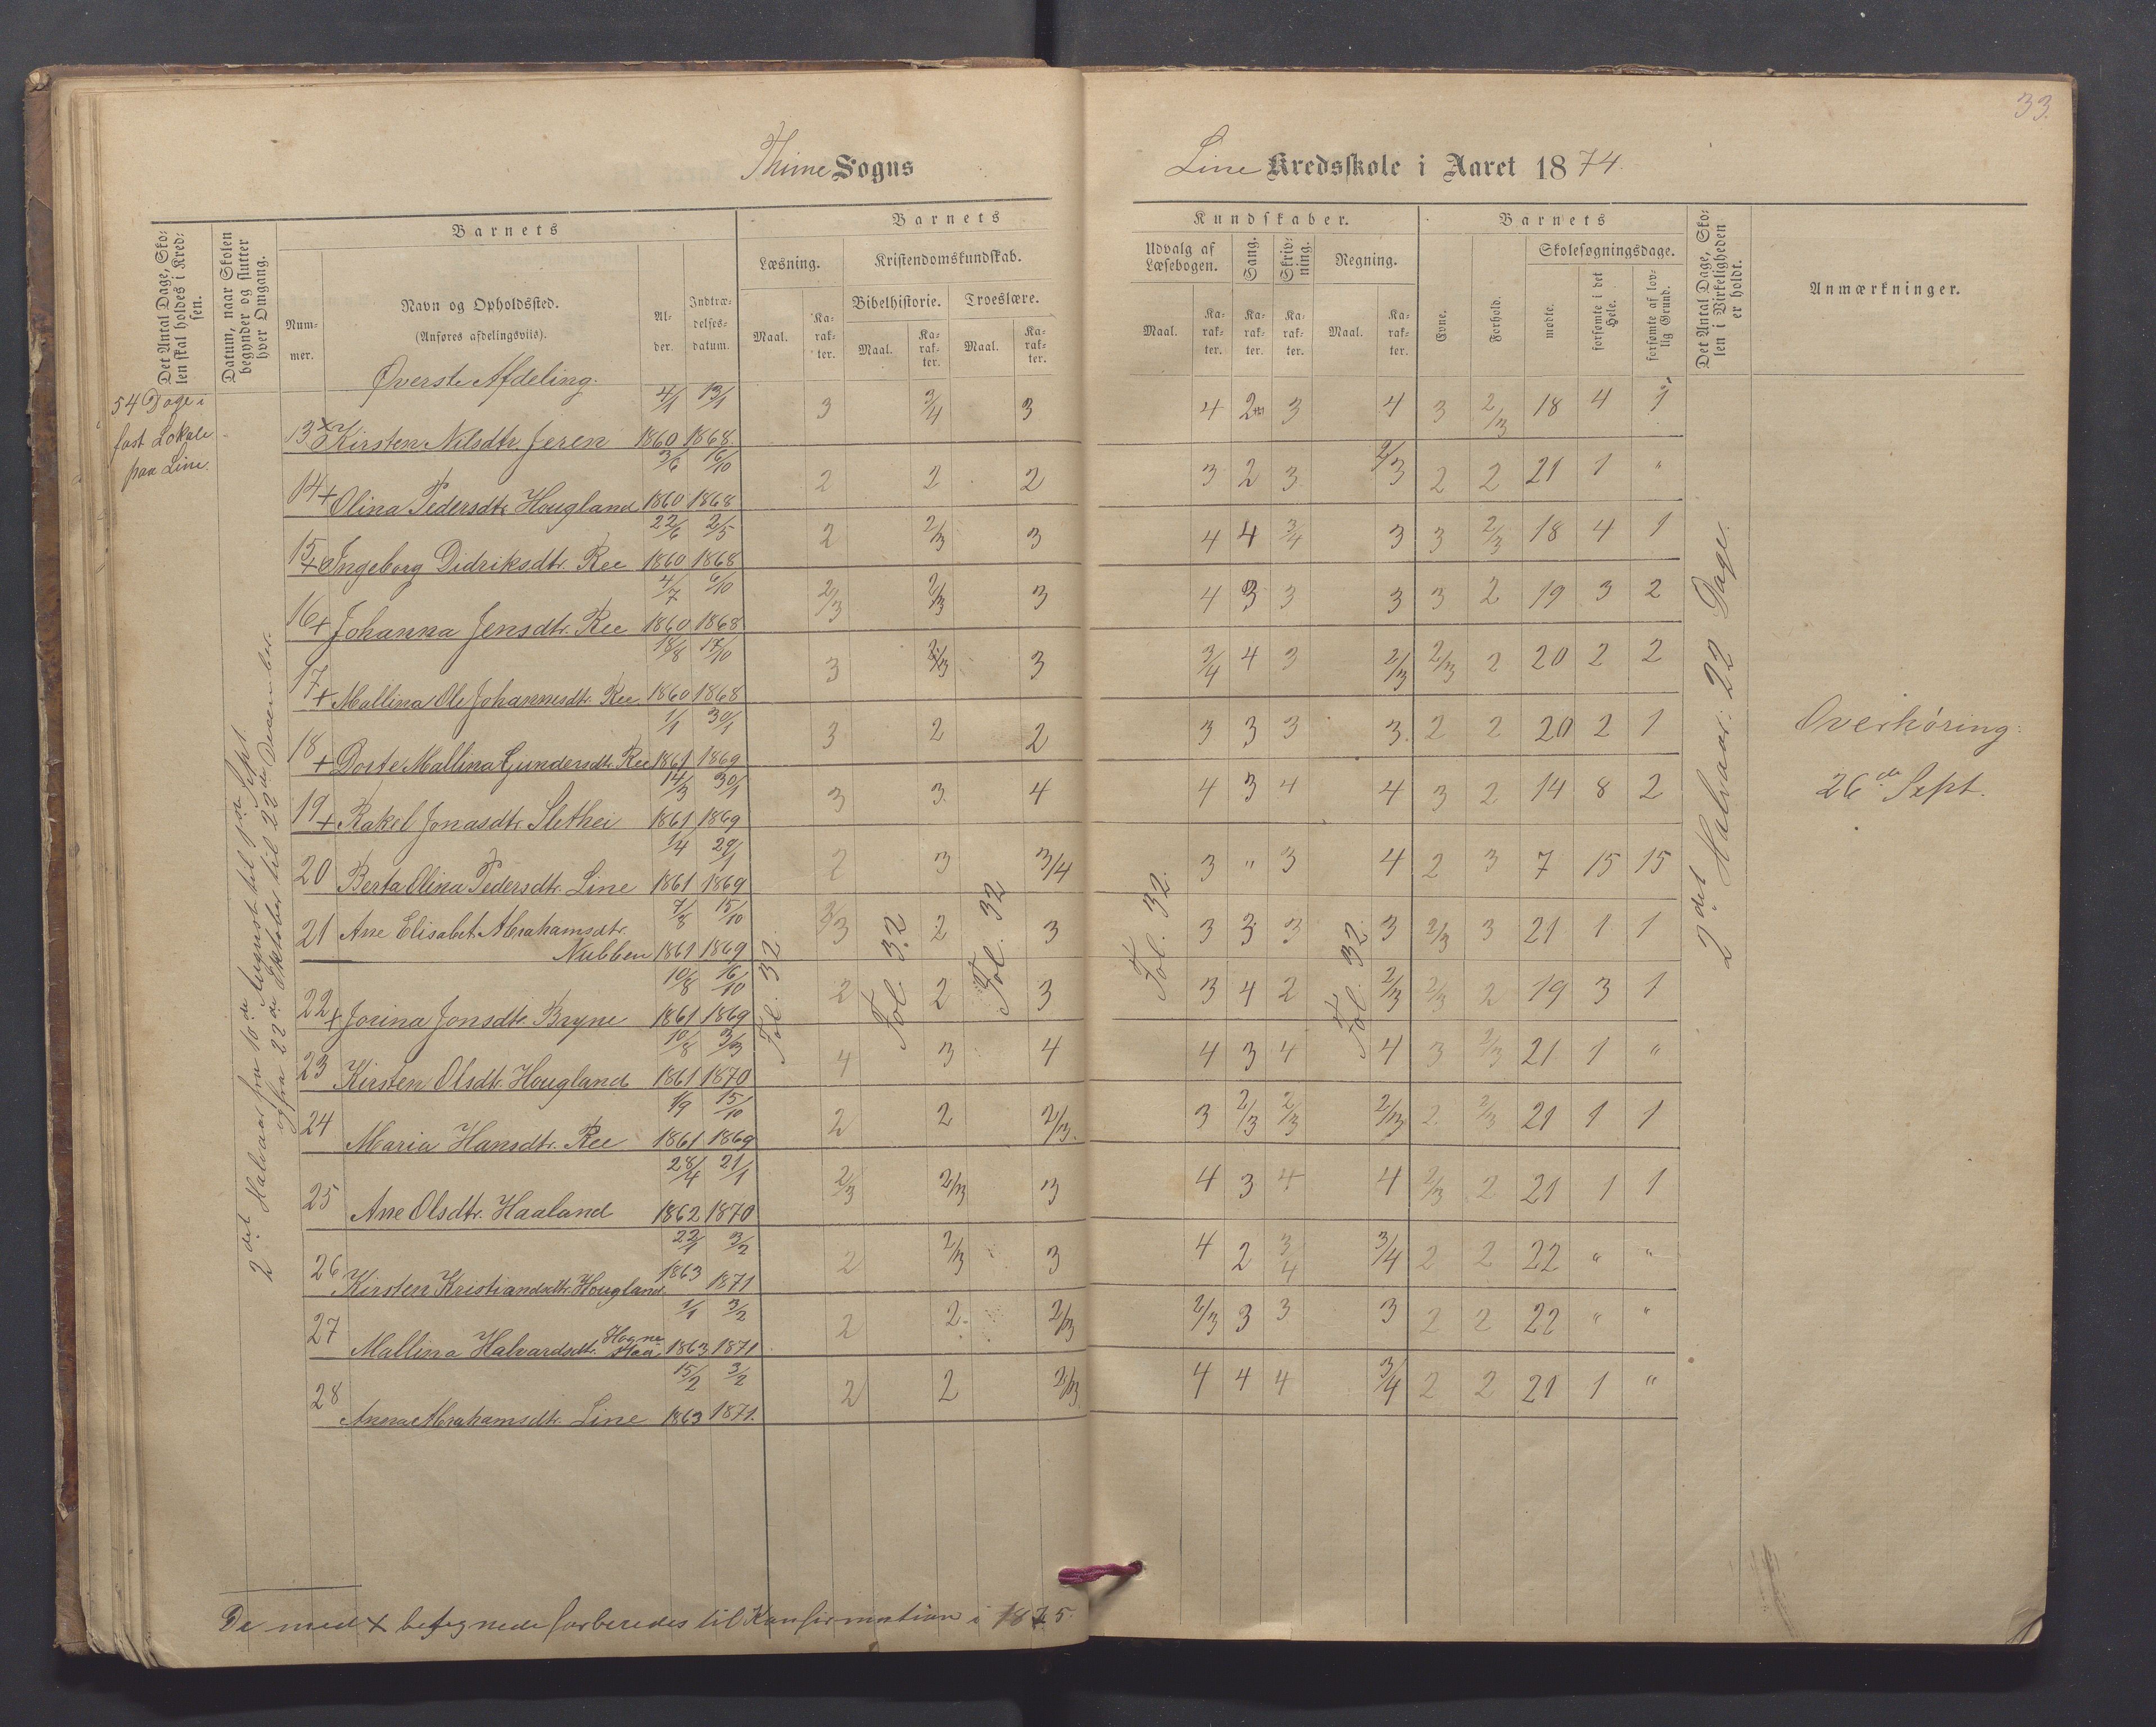 33.
Thime Sogns
Line Kredsskole i Aaret 1874.
Det Antal Dage, Skolen skal holdes i Kredsen.
Datum, naar Skolen begynder og slutter hver Omgang.
Barnets
Nummer.
Navn og Opholdssted.
(Anføres afdelingsviis).
Alder.
Indtrædelsesdatum.
Barnets
Læsning.
Kristendomskundskab.
Bibelhistorie.
Troeslære.
Maal.
Karakter.
Maal.
Karakter.
Maal.
Karakter.
Kundskaber.
Udvalg af Læsebogen.
Sang.
Skrivning.
Regning.
Maal.
Karakter.
Karakter.
Karakter.
Maal.
Karakter.
Barnets
Evne.
Forhold.
Skolesøgningsdage.
mødte.
forsømte i det Hele.
forsømte af lovlig Grund.
Det Antal Dage, Skolen i Virkeligheden er holdt.
Anmærkninger.
Øverste Afdeling.
54 Dage i
fast Lokale
paa Line.
2det Halvaar fra 10de August til 9de Sept
og fra 22de Oktober til 22de December.
13 x Kirsten Nilsdtr. Jeren 4/1 1860 13/1 1868 3 3/4 3 4 2 3 4 3 2/3 18 4 1
14 + Olina Pedersdtr. Hougland 3/6 1860 16/10 1868 2 2 2 3 2 3 2/3 2 2 21 1 "
15 + Ingeborg Didriksdtr. Ree 22/6 1860 2/5 1868 2 2/3 3 4 4 3/4 3 3 2/3 18 4 1
16 + Johanna Jensdtr. Ree 4/7 1860 6/10 1868 2/3 2/3 3 4 3 3 3 3 2 19 3 2
17 + Mallina Ole Johannesdtr. Ree 18/8 1860 17/10 1868 3 2/3 3 3/4 4 3 2/3 2/3 2 20 2 2
18 + Dorte Mallina Gundersdtr. Ree 1/1 1861 30/1 1869 3 2 2 3 3 3 3. 2 2 20 2 1
19 + Rakel Jonasdtr. Slethei 14/3 1861 30/1 1869 3 3 4 4 3 4 4 3 2 14 8 2
20 Berta Olina Pedersdtr. Line 1/4 1861 29/1 1869 2 3 3/4 3 " 3 4 2 3 7 15 15
21 Ane Elisabet Abrahamsdtr.
Nubben 7/8 1861 15/10 1869 2/3 2 3 3 3 3 3 2/3 3 21 1 1
22 + Jorina Jonsdtr. Bryne 10/8 1861 16/10 1869 2 2 3 3 4 2 2/3 2/3 2 19 3 1
23 Kirsten Olsdtr. Hougland 10/8 1861 3/3 1870 4 3 4 4 3 4 4 3 2/3 21 1 "
24 Maria Hansdtr. Ree 1/9 1861 15/10 1869 2 2 2/3. 3 2/3 2/3 2/3 2 2/3 21 1 1
25 Ane Olsdtr. Haaland 28/4 1862 21/1 1870 2/3 2/3 3 4 3 4 4 2/3 2 21 1 1
26 Kirsten Kristiansdtr. Hougland 22/1 1863 3/2 1871 2 2/3 3 4 2 3/4 3/4 2 2 22 " "
27 Mallina Halvardsdtr. Hognestad 1/1 1863 3/2 1871 2 2 2/3 2/3 3 3 3 2 2 22 " "
28 Anna Abrahamsdtr. Line 15/2 1863 3/2 1871. 2 2 2/3 4 4 4 3/4 2 2 21 1 "
Fol. 32.
Fol. 32
Fol. 32
Fol. 32.
Fol. 32.
2det Halvaar: 22 Dage.
Overhöring:
26de Sept.
De med + betegnede forberedes til Konfirmation i 1875.